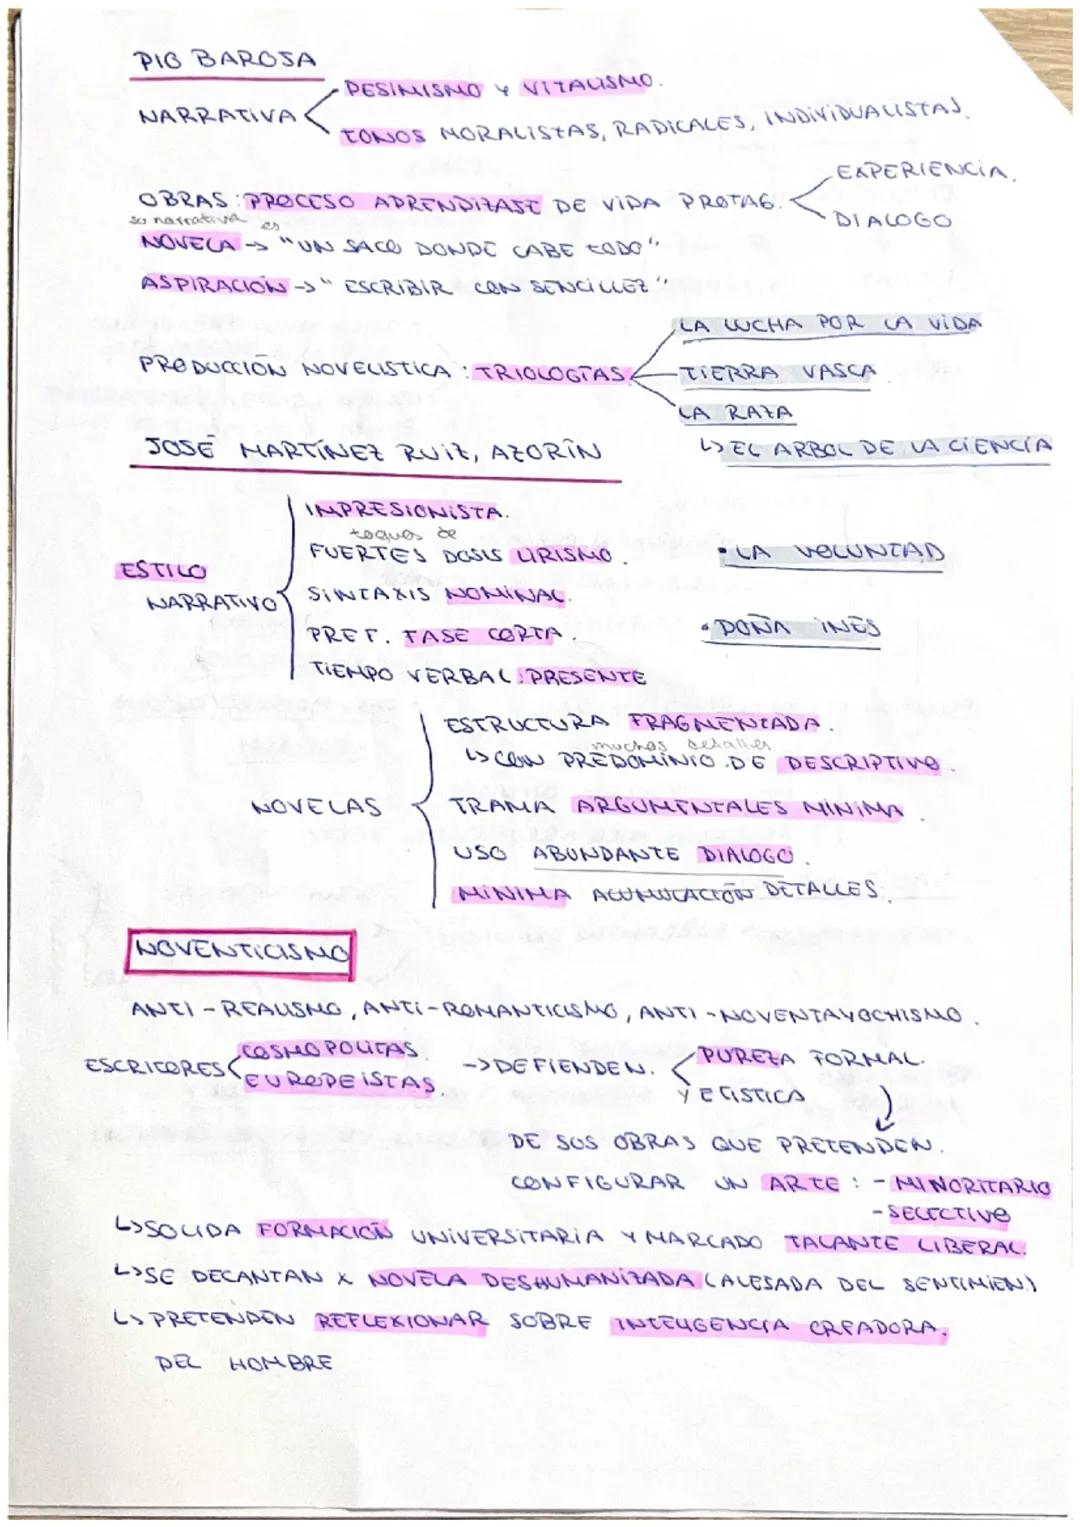 PIO BAROJA
NARRATIVA
PESIMISMO Y VITALISMO.
TONOS MORALISTAS, RADICALES, INDIVIDUALISTAS.
OBRAS: PROCESO APRENDIZAJE DE VIDA PROTAG.
EXPERIENCIA.
DIALOGO
su narrativa es
NOVELA -> "UN SACO DONDE CABE TODO".
ASPIRACIÓN -> "ESCRIBIR CON SENCILLEZ".
PRODUCCIÓN NOVELISTICA: TRIOLOGÍAS
LA LUCHA POR LA VIDA
TIERRA VASCA
LA RAZA
↳ EL ARBOL DE LA CIENCIA
JOSÉ MARTÍNEZ RUIZ, AZORÍN
ESTILO NARRATIVO
IMPRESIONISTA.
toques de
FUERTES DOSIS LIRISMO.
SINTAXIS NOMINAL.
PREF. FASE CORTA.
TIEMPO VERBAL: PRESENTE
• LA VOLUNTAD
• DOÑA INÉS
NOVELAS
ESTRUCTURA FRAGMENTADA.
muchos detalles
↳ CON PREDOMINIO DE DESCRIPTIVO.
TRAMA ARGUMENTALES MÍNIMA.
USO ABUNDANTE DIALOGO.
MÍNIMA ACUMULACIÓN DETALLES.
NOVENTICISMO
ANTI-REALISMO, ANTI-ROMANTICISMO, ANTI-NOVENTAYOCHISMO.
ESCRITORES
COSMOPOLITAS.
EUROPEISTAS.
-> DEFIENDEN.
PUREZA FORMAL.
Y ETISTICA
DE SUS OBRAS QUE PRETENDEN.
CONFIGURAR UN ARTE: - MINORITARIO
- SELECTIVO
↳ SOLIDA FORMACIÓN UNIVERSITARIA Y MARCADO TALANTE LIBERAL.
↳ SE DECANTAN X NOVELA DESHUMANIZADA (ALEJADA DEL SENTIMIEN)
↳ PRETENDEN REFLEXIONAR SOBRE INTELIGENCIA CREADORA.
DEL HOMBRE